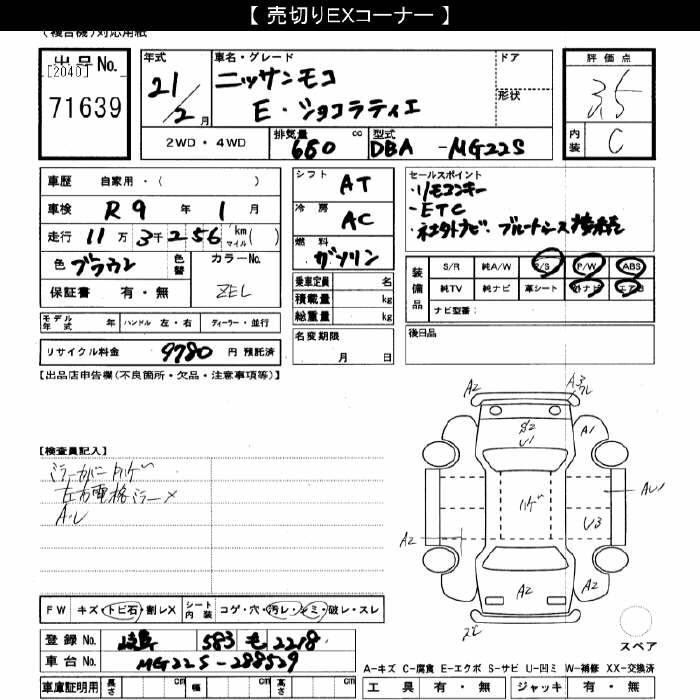 【 売切りEXコーナー 】
(複合機)対応用紙
出品No.
[2040]
71639
年式
21/2月
車名・グレード
ニッサンモコ
E・ショコラティエ
ドア
形状
評価点
3.5
内装
C
2WD・4WD
排気量
660 cc
型式
DBA-MG22S
車歴 自家用・( )
車検 R9年1月
走行 11万3千256 km マイル( )
色 ブラウン
色替
カラーNo.
ZEL
保証書 有・無
シフト
AT
冷房
AC
燃料
ガソリン
乗車定員 名
積載量 kg
総重量 kg
セールスポイント
・リモコンキー
・ETC
・社外ナビ・ブルートゥース接続
装備品
S/R 純A/W P/S P/W ABS
純TV 純ナビ 革シート 外ナビ エアB
ナビ型番:
モデル年式 年 ハンドル 左・右 ディーラー・並行
名変期限
月 日
後日品
リサイクル料金 9780 円 預託済
【出品店申告欄(不良箇所・欠品・注意事項等)】
【検査員記入】
ミラーカバーハゲ
左右電格ミラー×
A・U
A2
A1
S2
U1
ハゲ
U3
A2
A2
A2
FW キズ・トビ石・割レX
シート内装 コゲ・穴・汚レ・シミ・破レ・スレ
登録No. 岐阜 583 も 2218
車台No. MG22S-288529
車庫証明用 長さ cm 幅 cm 高さ cm
スペア
A-キズ C-腐食 E-エクボ S-サビ U-凹ミ W-補修 XX-交換済
工具 有・無 ジャッキ 有・無